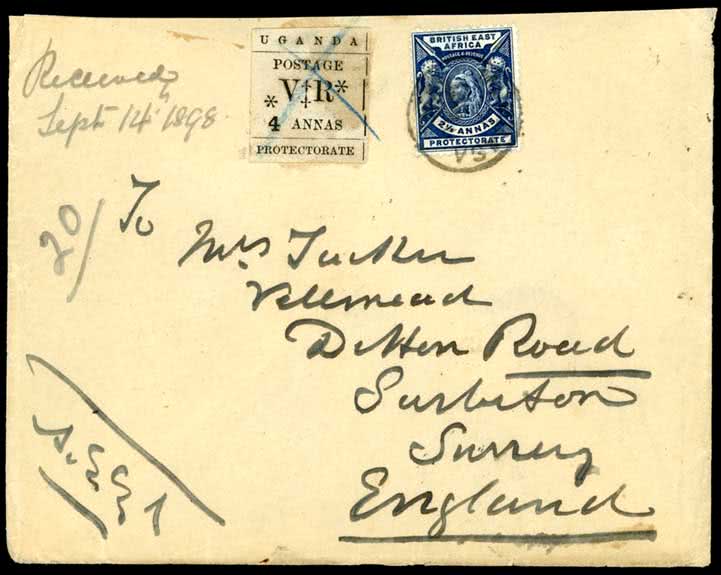 Received
Sept 14 1898
UGANDA
POSTAGE
V R
4 ANNAS
PROTECTORATE
BRITISH EAST
AFRICA
POSTAGE & REVENUE
2½ ANNAS
PROTECTORATE
20/
To
Mrs Tucker
Ditton Road
Surbiton
Surrey
England